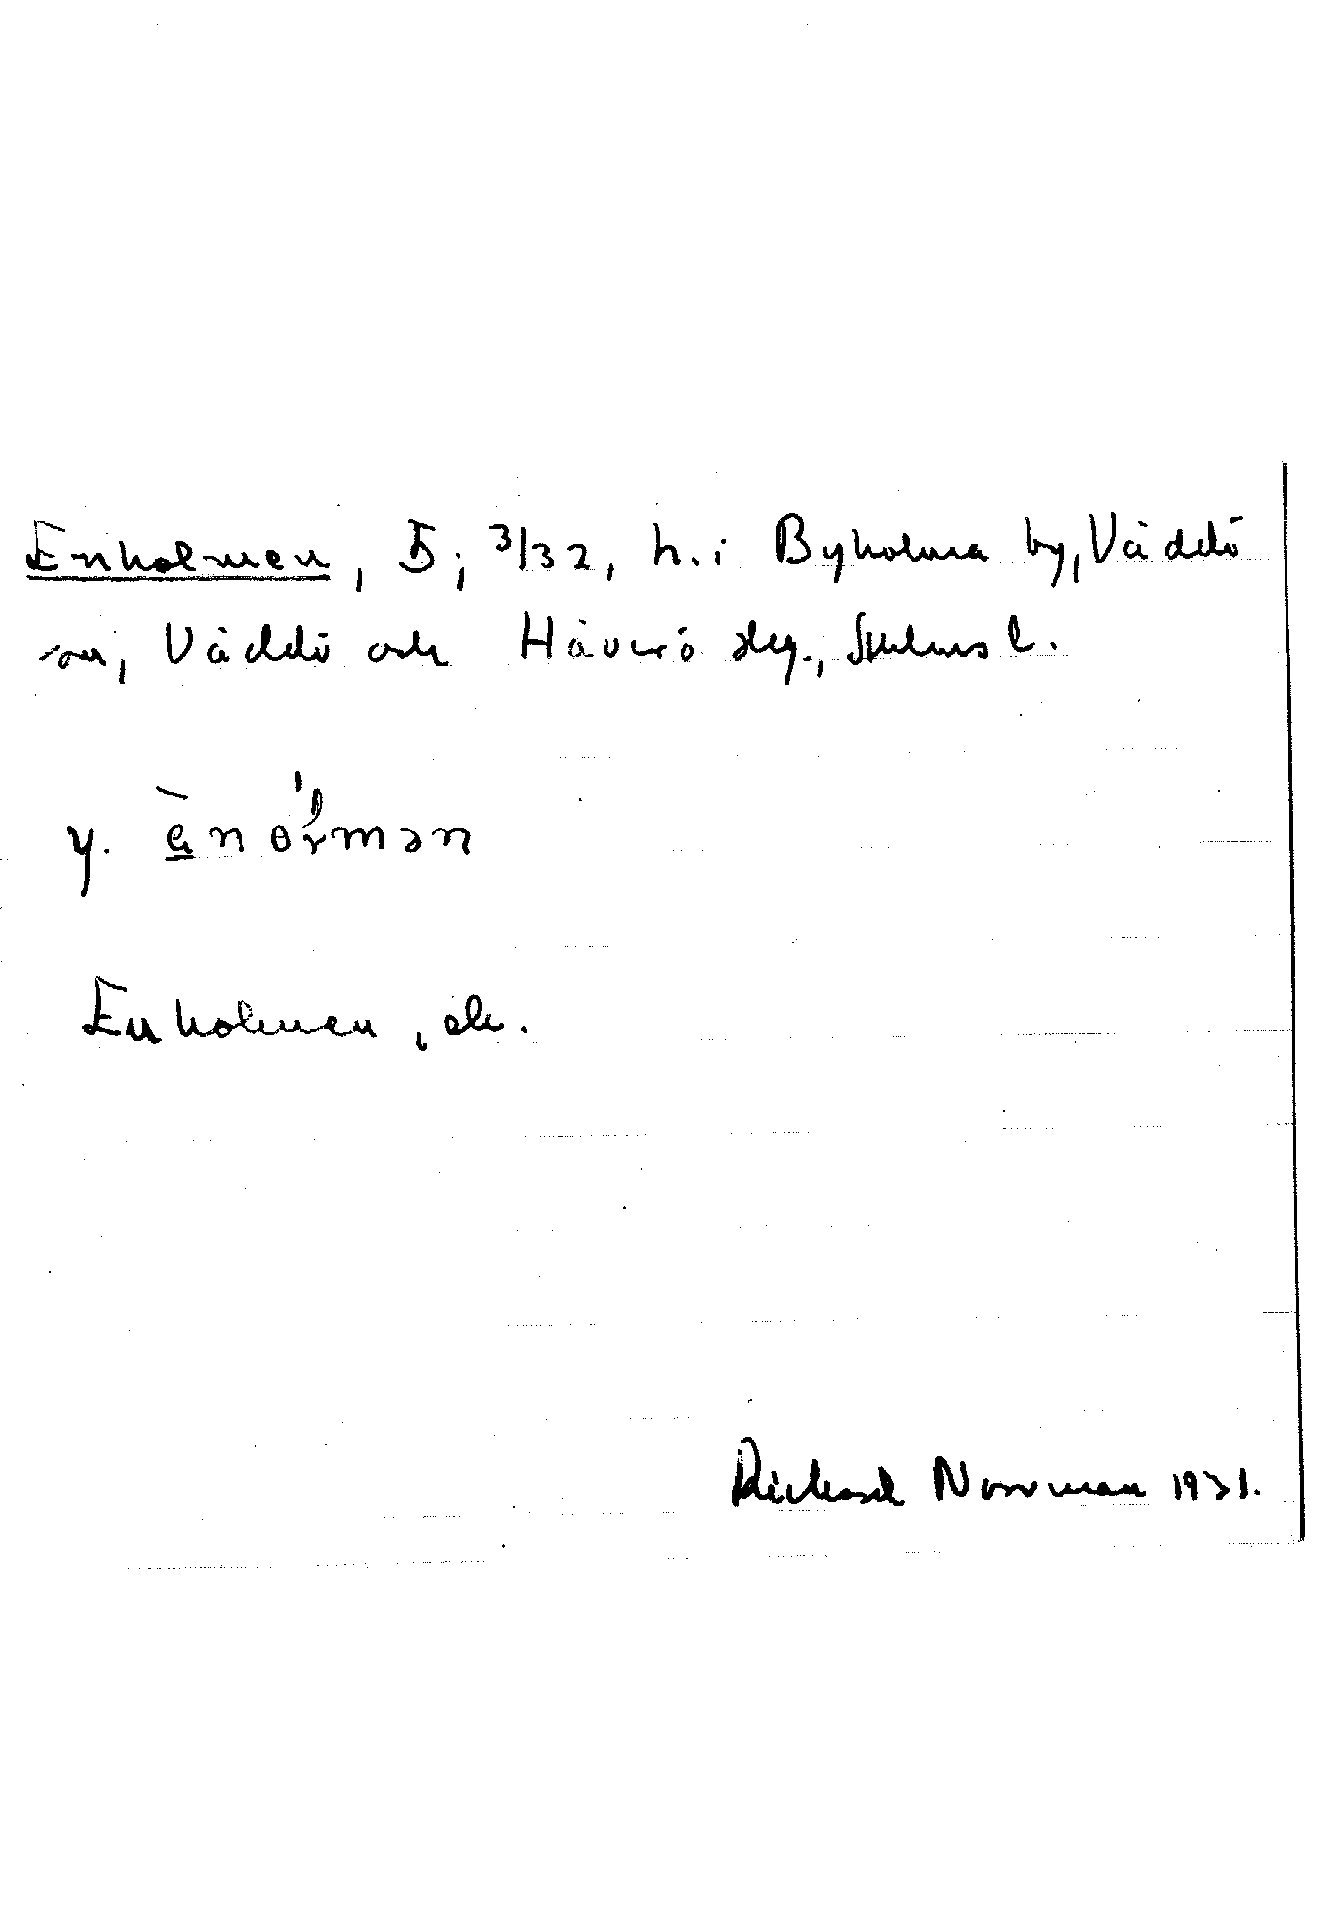 Enholmen, 5; 3/32, h. i Byholma by, Väddö
sn, Väddö och Häverö slg., Sthms l.
y.
Enholmen, ek.
Rickard Norrman 1931.